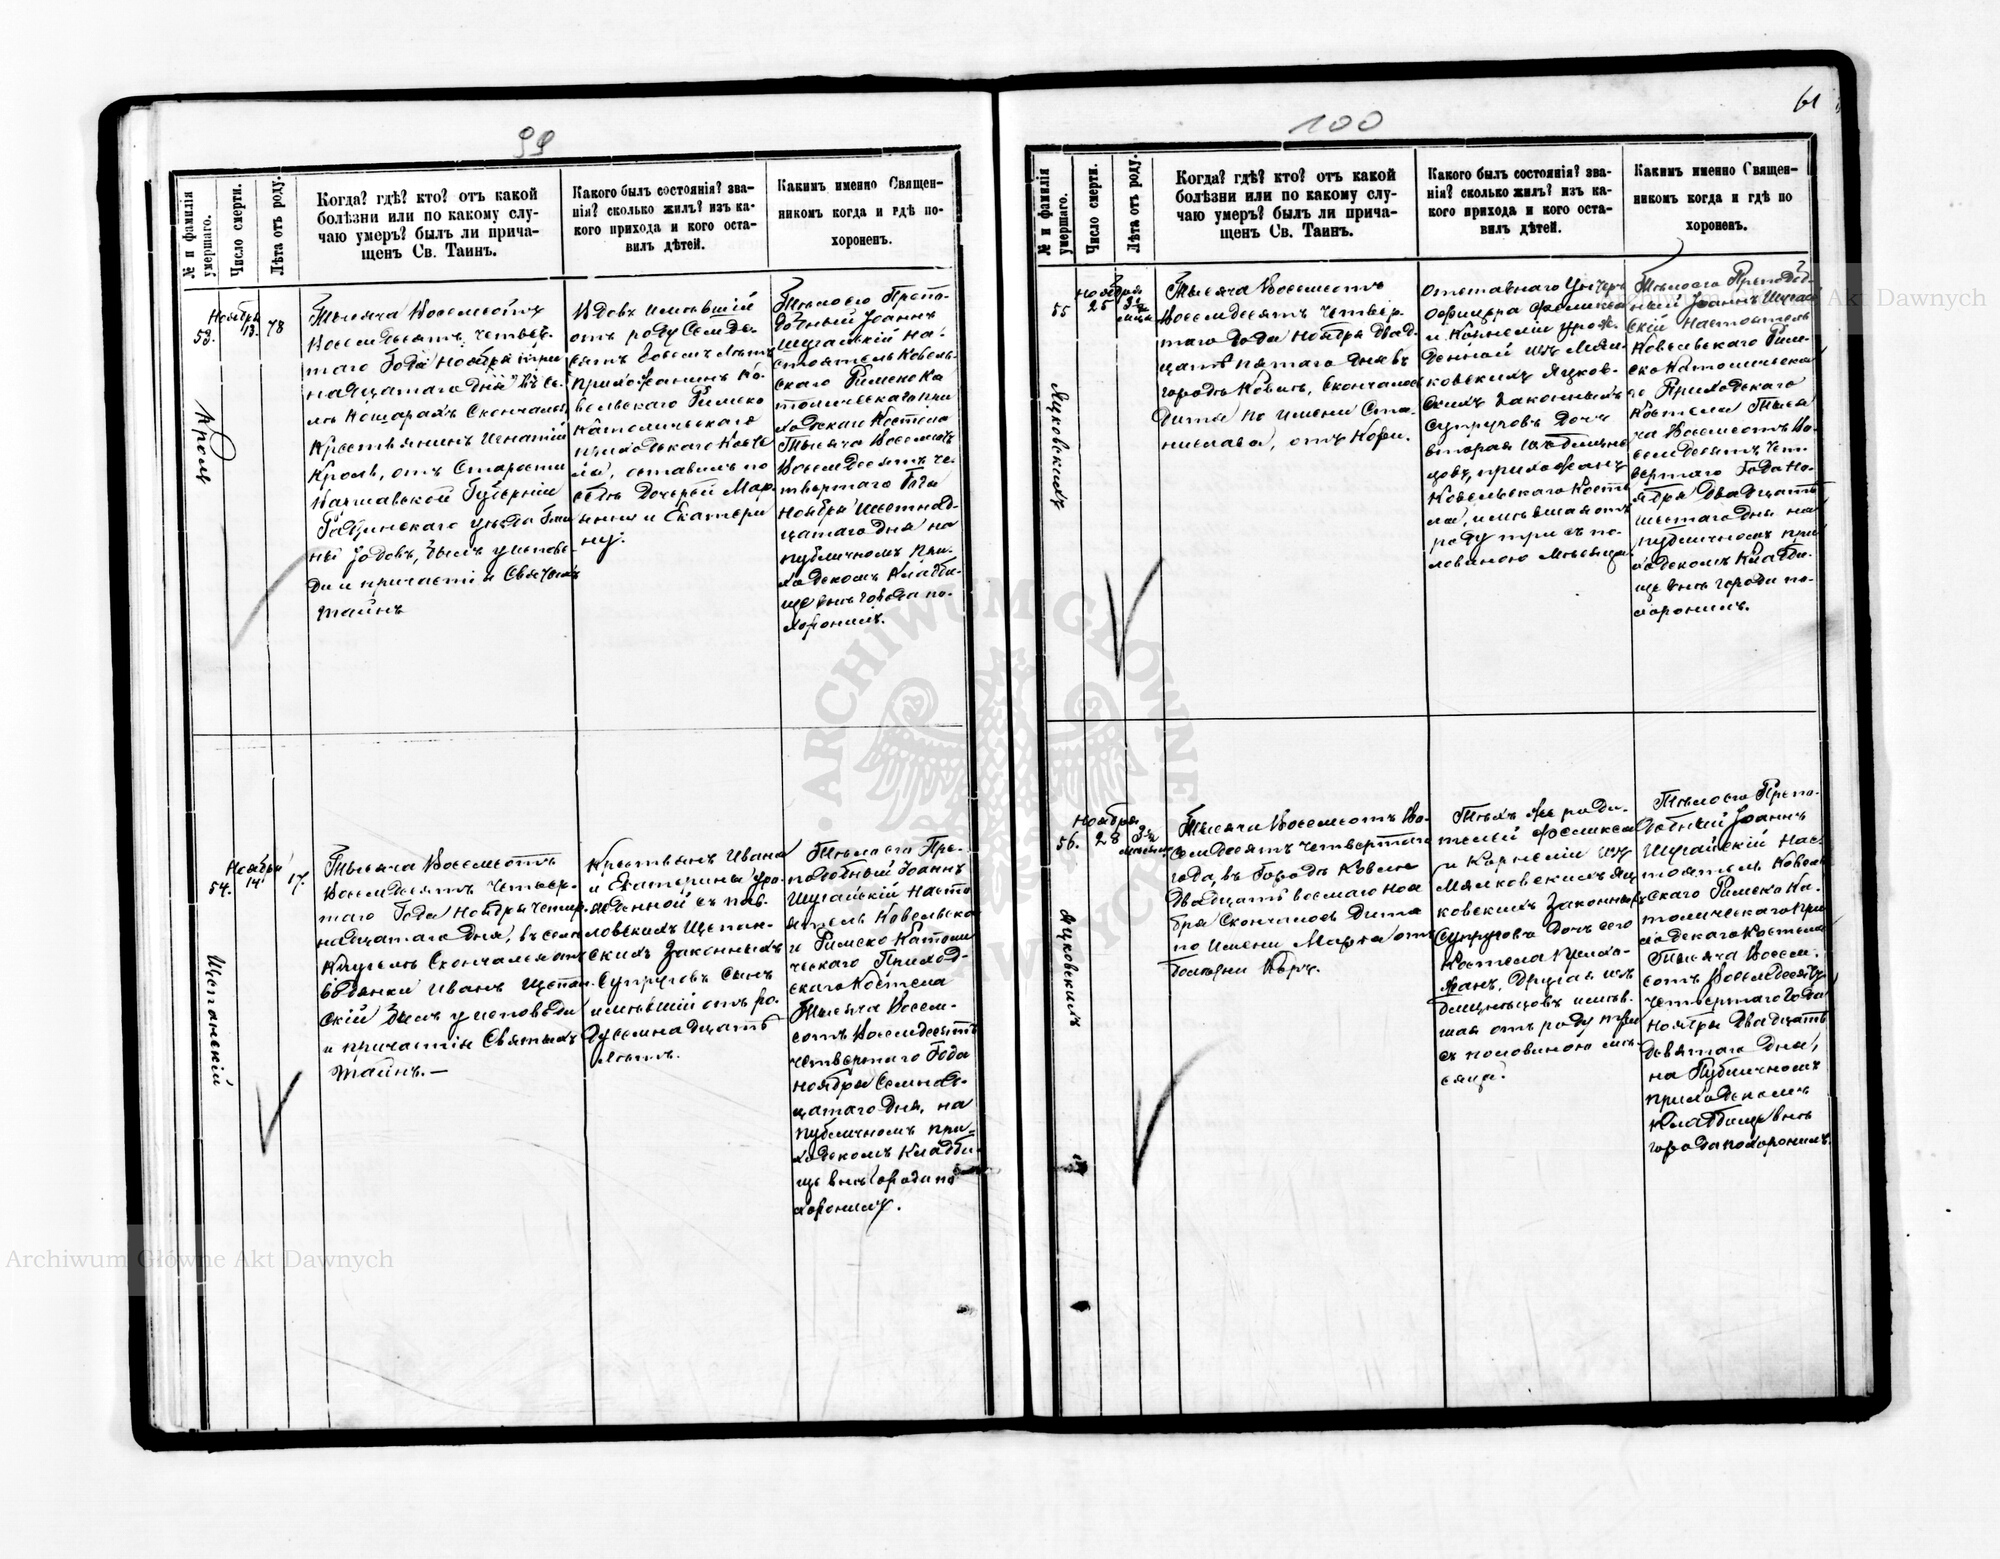 99
№ и фамилія умершаго.
Число смерти.
Лѣта отъ роду.
Когда? гдѣ? кто? отъ какой
болѣзни или по какому слу-
чаю умеръ? былъ ли прича-
щенъ Св. Таинъ.
Какого былъ состоянія? зва-
нія? сколько жилъ? изъ ка-
кого прихода и кого оста-
вилъ дѣтей.
Каким именно Священ-
никомъ когда и гдѣ по-
хороненъ.
53.
Кроль
Ноября
13.
78
Тысяча Восемьсотъ
Восемьдесятъ четвер-
таго Года Ноября три
надцатаго Дня въ се-
лѣ Кошарахъ скончался
Крестьянинъ Игнатій
Кроль, отъ Старости
Варшавской Губерніи
уѣзда Гми
ны былъ у исповѣ-
ди и причастія Святыхъ
Таинъ
Вдовъ имѣвшій
отъ роду Семьде-
сятъ восемь лѣтъ
прихожанинъ Ко-
вельскаго Римско
Католическаго
приходскаго Косте
ла, оставилъ по
себѣ Дочерей Мар-
и Екатери
ну.
Тѣмъ его Препо-
добный Іоаннъ
Шугайскій На-
стоятель Ковель-
скаго Римско Ка
толическаго при
ходскаго Костела
Тысяча Восемьсотъ
Восемьдесятъ че-
твертаго Года
Ноября Шестнад-
цатаго Дня на
публичномъ при-
ходскомъ кладби-
щѣ внѣ города по-
хоронилъ.
54.
Щепанскій
Ноября
14.
17.
Тысяча Восемьсотъ
Восемьдесятъ Четвер-
таго Года Ноября четыр
надцатаго Дня, въ селѣ
скончался отъ
Иванъ Щепан-
скій былъ у исповѣди
и причастія Святыхъ
Таинъ.—
Крестьянъ Ивана
и Екатерины уро-
жденной съ Пав-
ловскихъ Щепан-
скихъ Законныхъ
Супруговъ сынъ
имѣвшій отъ ро-
ду семнадцать
лѣтъ.
Тѣмъ его Пре-
подобный Іоаннъ
Шугайскій Насто
ятель Ковельска
го Римско Католи
ческаго Приход-
скаго Костела
Тысяча Восем-
сотъ Восемьдесятъ
четвертаго Года
Ноября Семнад-
цатаго Дня, на
публичномъ при=
ходскомъ кладби-
щѣ внѣ города по
хоронилъ.
100
61
№ и фамилія умершаго.
Число смерти.
Лѣта отъ роду.
Когда? гдѣ? кто? отъ какой
болѣзни или по какому слу-
чаю умеръ? былъ ли прича-
щенъ Св. Таинъ.
Какого былъ состоянія? зва-
нія? сколько жилъ? изъ ка-
кого прихода и кого оста-
вилъ дѣтей.
Каким именно Священ-
никомъ когда и гдѣ по
хороненъ.
55
Яцковскихъ
Ноября
25
3½
Тысяча Восемьсотъ
Восемьдесятъ Четвер-
таго Года Ноября Двад-
цать пятаго Дня въ
городѣ Ковлѣ, скончалось
Дитя по имени Ста-
нислава, отъ Кори.
Отставнаго Унтеръ
Офицера Феликса
и Корнеліи урож-
денной изъ Мял-
ковскихъ Яцков-
скихъ Законныхъ
Супруговъ Дочь
вторая изъ близне-
цовъ, прихожанъ
Ковельскаго Косте
ла, имѣвшая отъ
роду три съ по-
ловиною мѣсяца
Тѣмъ его Преподоб-
ный Іоаннъ Шугай
скій Настоятель
Ковельскаго Рим-
ско Католическа
го Приходскаго
Костела Тыся
ча Восемьсотъ Во-
семьдесятъ Чет-
вертаго Года Но-
ября Двадцать
шестаго Дня на
публичномъ при
ходскомъ кладби-
щѣ внѣ города по-
хоронилъ.
56.
Яцковскихъ
Ноября
28
3½
Тысяча Восемьсотъ Во-
семьдесятъ четвертаго
года, въ Городѣ Ковлѣ
Двадцать восьмаго Ноя
бря Скончалось Дитя
по Имени Марта отъ
болѣзни Корь.
Тѣхъ же роди-
телей Феликса
и Корнеліи изъ
Мялковскихъ Яц
ковскихъ Законныхъ
Супруговъ Дочь сего
Костела прихо-
жанъ, Другая изъ
близнецовъ имѣв-
шая отъ роду три
съ половиною мѣ-
сяца.
Тѣмъ его Препо-
добный Іоаннъ
Шугайскій Нас-
тоятель Ковель
скаго Римско Ка-
толическаго При
ходскаго Костела
Тысяча Восем-
сотъ Восемьдесятъ
четвертаго Года
Ноября Двадцать
девятаго Дня,
на Публичномъ
приходскомъ
Кладбищѣ внѣ
города похоронилъ.
ARCHIWUM GŁÓWNE AKT DAWNYCH
Archiwum Główne Akt Dawnych
Archiwum Główne Akt Dawnych